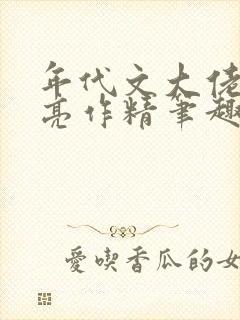 年代文大佬
亮作精笔趣
愛喫香瓜的女